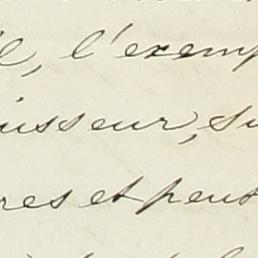 l'exemp
isseur, su
res et peut